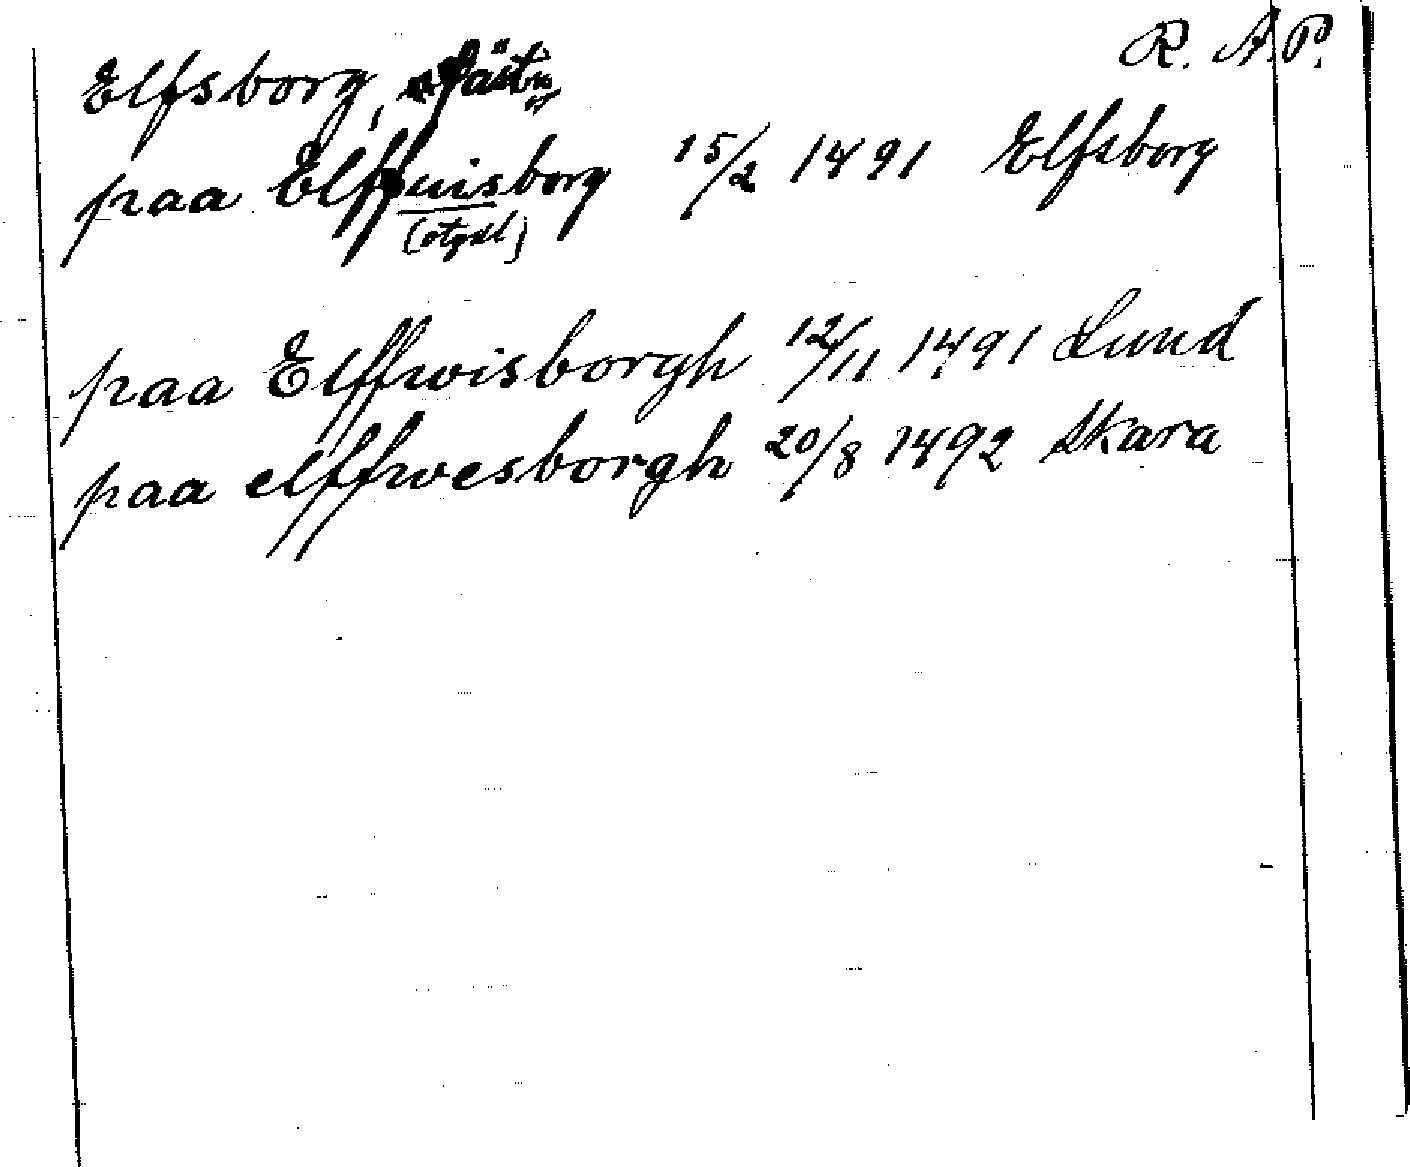 Elfsborg, fästn. R. A. P.
paa Elffuisborg 15/2 1491 Elfsborg
(otydl)
paa Elffwisborgh 12/11 1491 Lund
paa elffwesborgh 20/8 1492 Skara